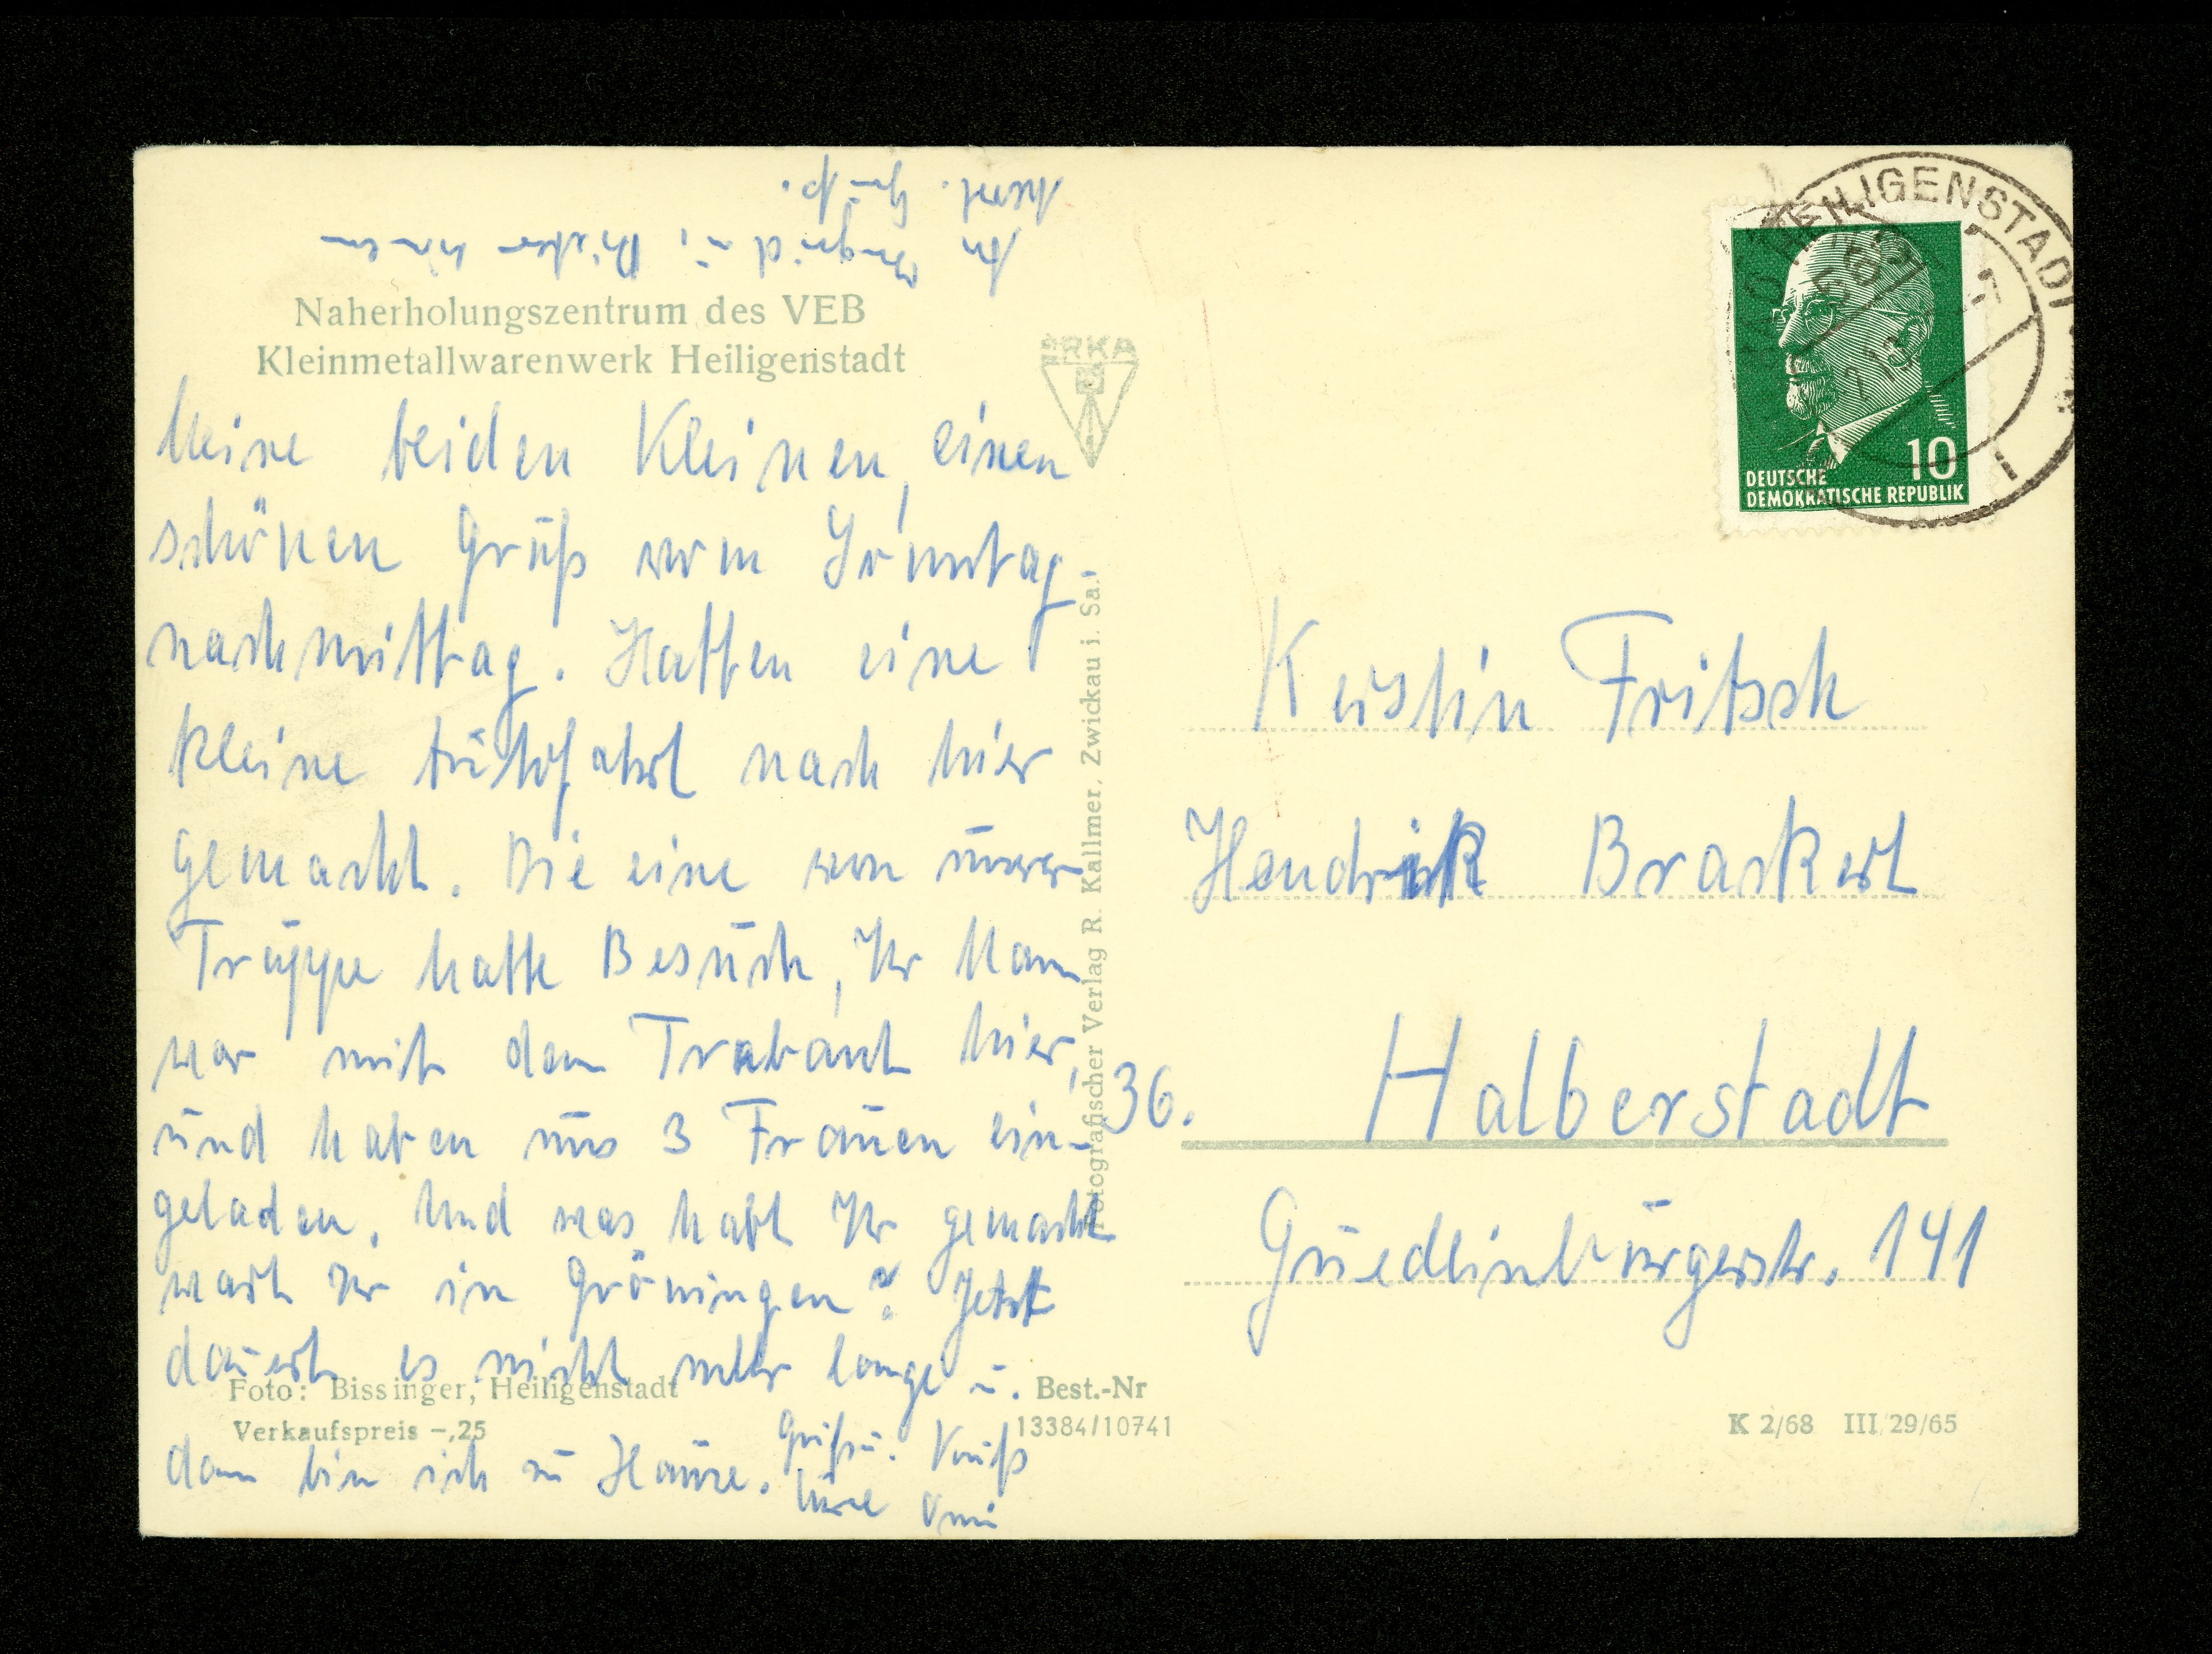 An Ingrid u. Dieter einen
herzl. Gruß.
Naherholungszentrum des VEB
Kleinmetallwarenwerk Heiligenstadt
Meine beiden Kleinen, einen
schönen Gruß vom Sonntag-
nachmittag. Hatten eine
kleine Autofahrt nach hier
gemacht. Die eine von unserer
Truppe hatte Besuch, Ihr Mann
war mit dem Trabant hier,
und haben uns 3 Frauen ein-
geladen. Und was habt Ihr gemacht
wart Ihr in Gröningen? Jetzt
dauert es nicht mehr lange u.
dann bin ich zu Hause. Gruß u. Kuß
Eure Omi
Foto: Bissinger, Heiligenstadt
Verkaufspreis –,25
Best.-Nr
13384/10741
ERKA
Fotografischer Verlag R. Kallmer, Zwickau i. Sa.
HEILIGENSTADT
10
DEUTSCHE
DEMOKRATISCHE REPUBLIK
Kerstin Fritsch
Hendrik Brackert
36. Halberstadt
Quedlinburgerstr. 141
K 2/68 III/29/65